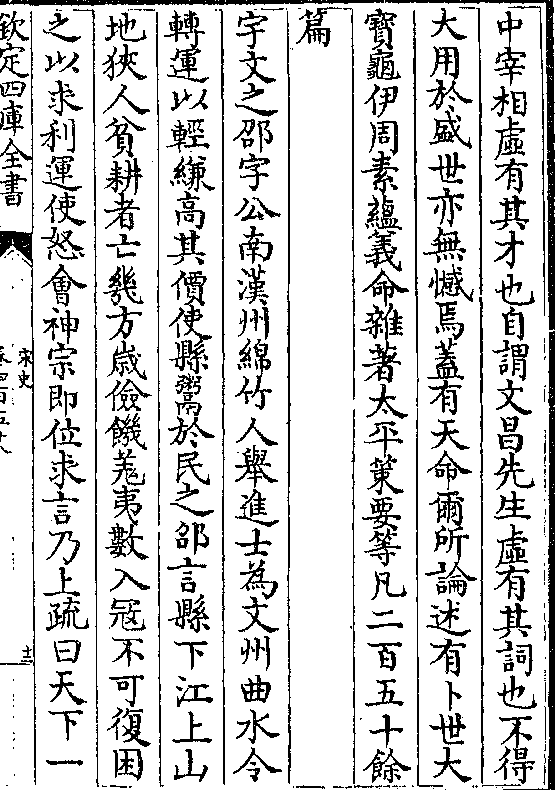 中宰相虛有其才也自謂文昌先生虛有其詞也不得
大用於盛世亦無憾焉葢有天命爾所論述有卜世大
寳龜伊周素藴義命雜著太平策要等凡二百五十餘
篇
宇文之邵字公南漢州綿竹人舉進士為文州曲水令
轉運以輕縑高其價使縣鬻於民之邵言縣下江上山
地狹人貧耕者亡幾方歲儉饑羗夷數入冦不可復困
之以求利運使怒會神宗即位求言乃上疏曰天下一
欽定四庫全書
宋史